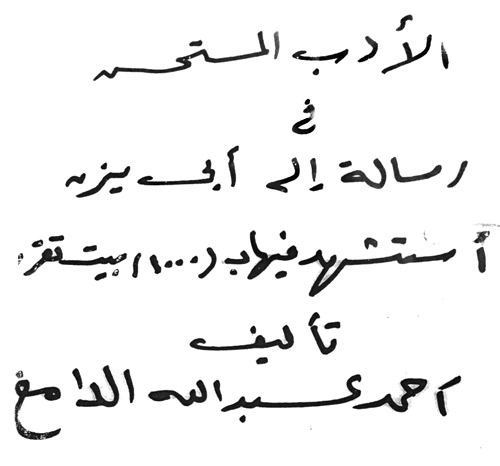 الأدب المستحسن
في
رسالة إلى أبي يزن
أستشهد فيها ب (١٠٠٠) بيت تقر
تأليف
أحمد عبد الله الدامغ